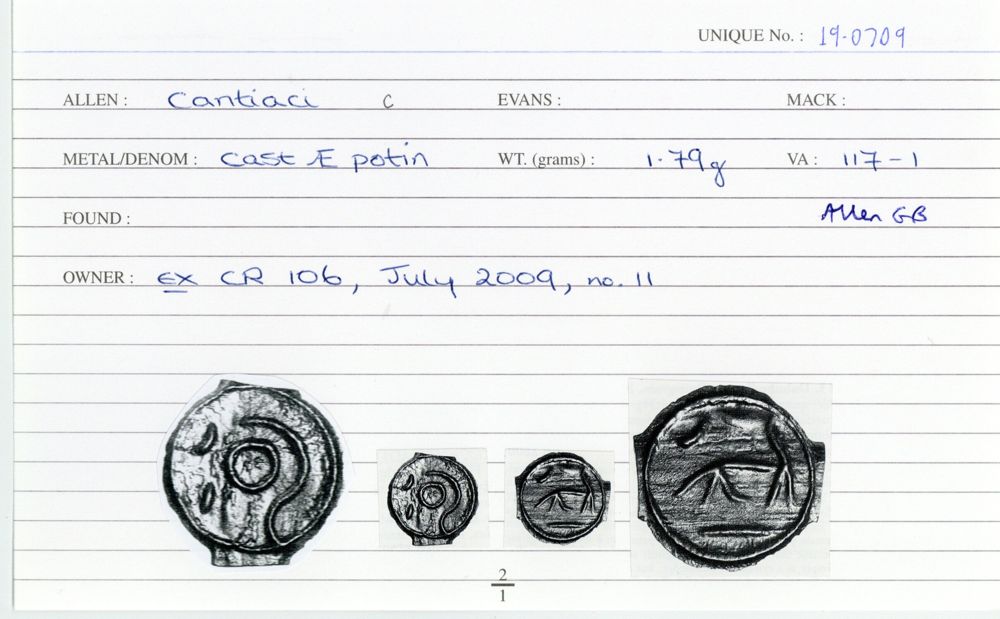 UNIQUE No. : 19-0709
ALLEN : Cantiaci C EVANS : MACK :
METAL/DENOM : Cast Æ potin WT. (grams) : 1.79g VA : 117-1
FOUND : Allen GB
OWNER : ex CR 106, July 2009, no. 11
2
1